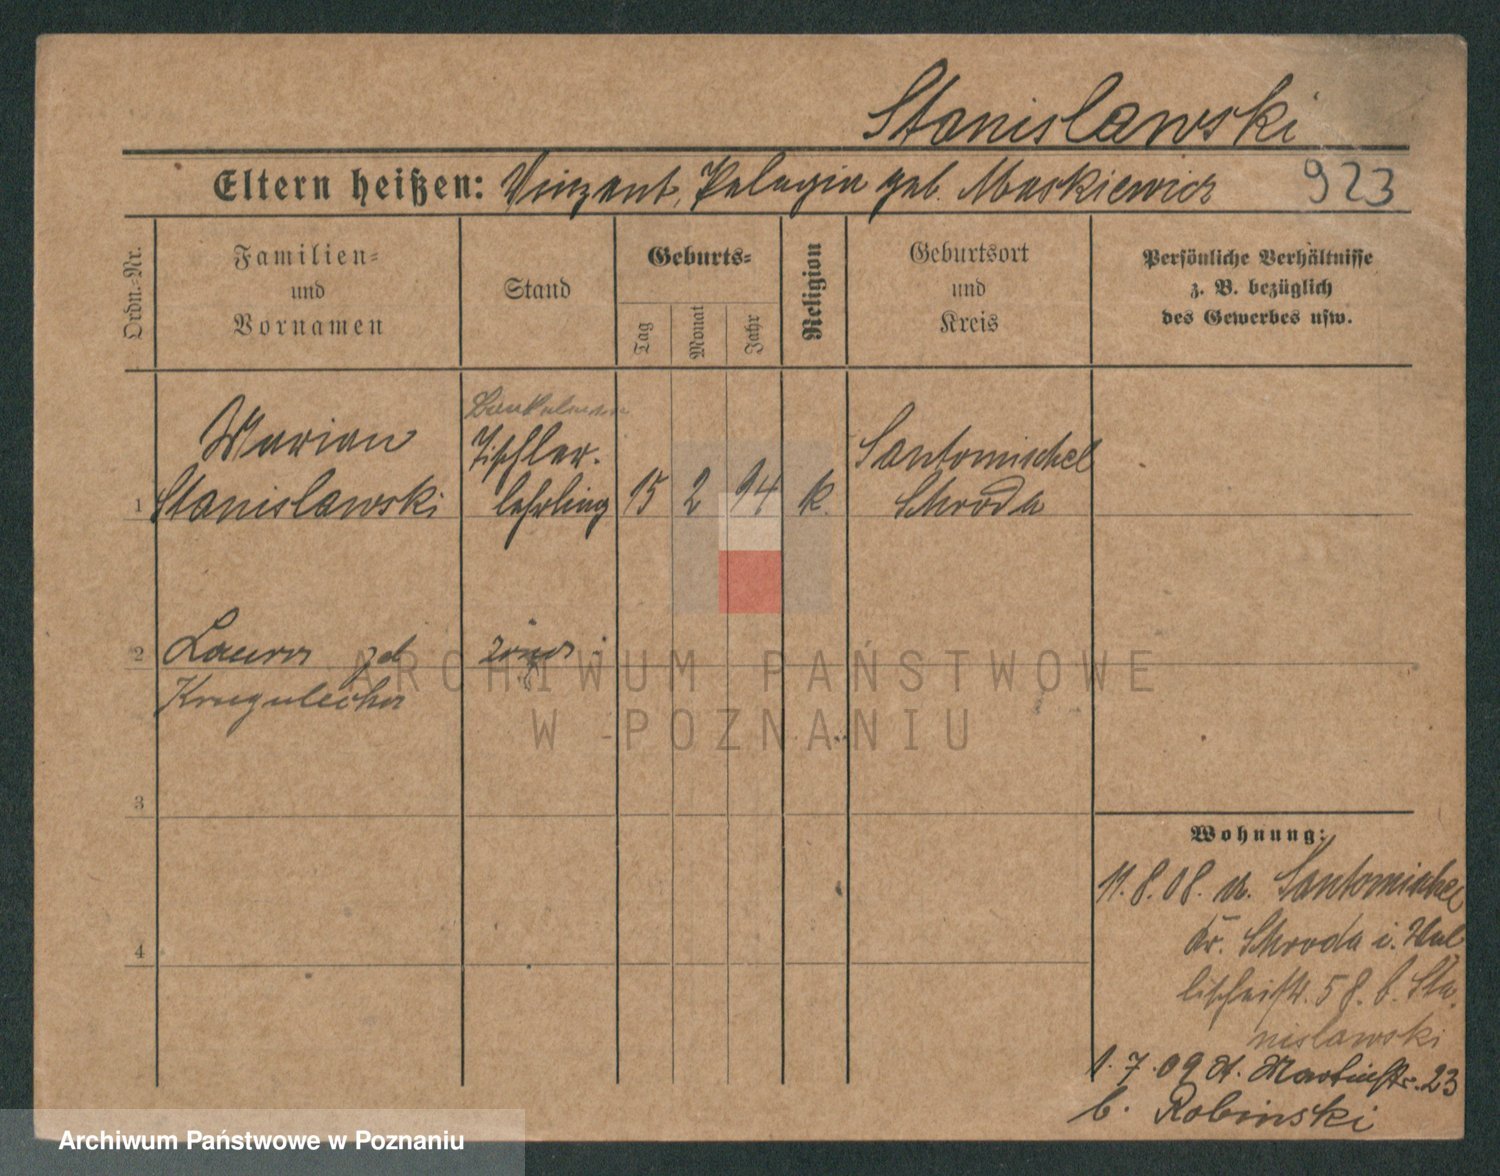 Stanislawski
Eltern heißen: Vinzent, Pelagia geb. Maskiewicz 923
Ordn.-Nr.
Familien-
und
Vornamen
Stand
Geburts-
Tag
Monat
Jahr
Religion
Geburtsort
und
Kreis
Persönliche Verhältnisse
z. B. bezüglich
des Gewerbes usw.
Marian
1 Stanislawski
Tischler-
lehrling
15 2 94 k.
Santomischel
Schroda
2 Laura
3
4
Wohnung:
11.8.08. a. Santomischel
Kr. Schroda i. Wal
lischeistr. 58. b. Sta-
nislawski
1.7.09 Martinstr. 23
b. Robinski
ARCHIWUM PAŃSTWOWE
W POZNANIU
Archiwum Państwowe w Poznaniu